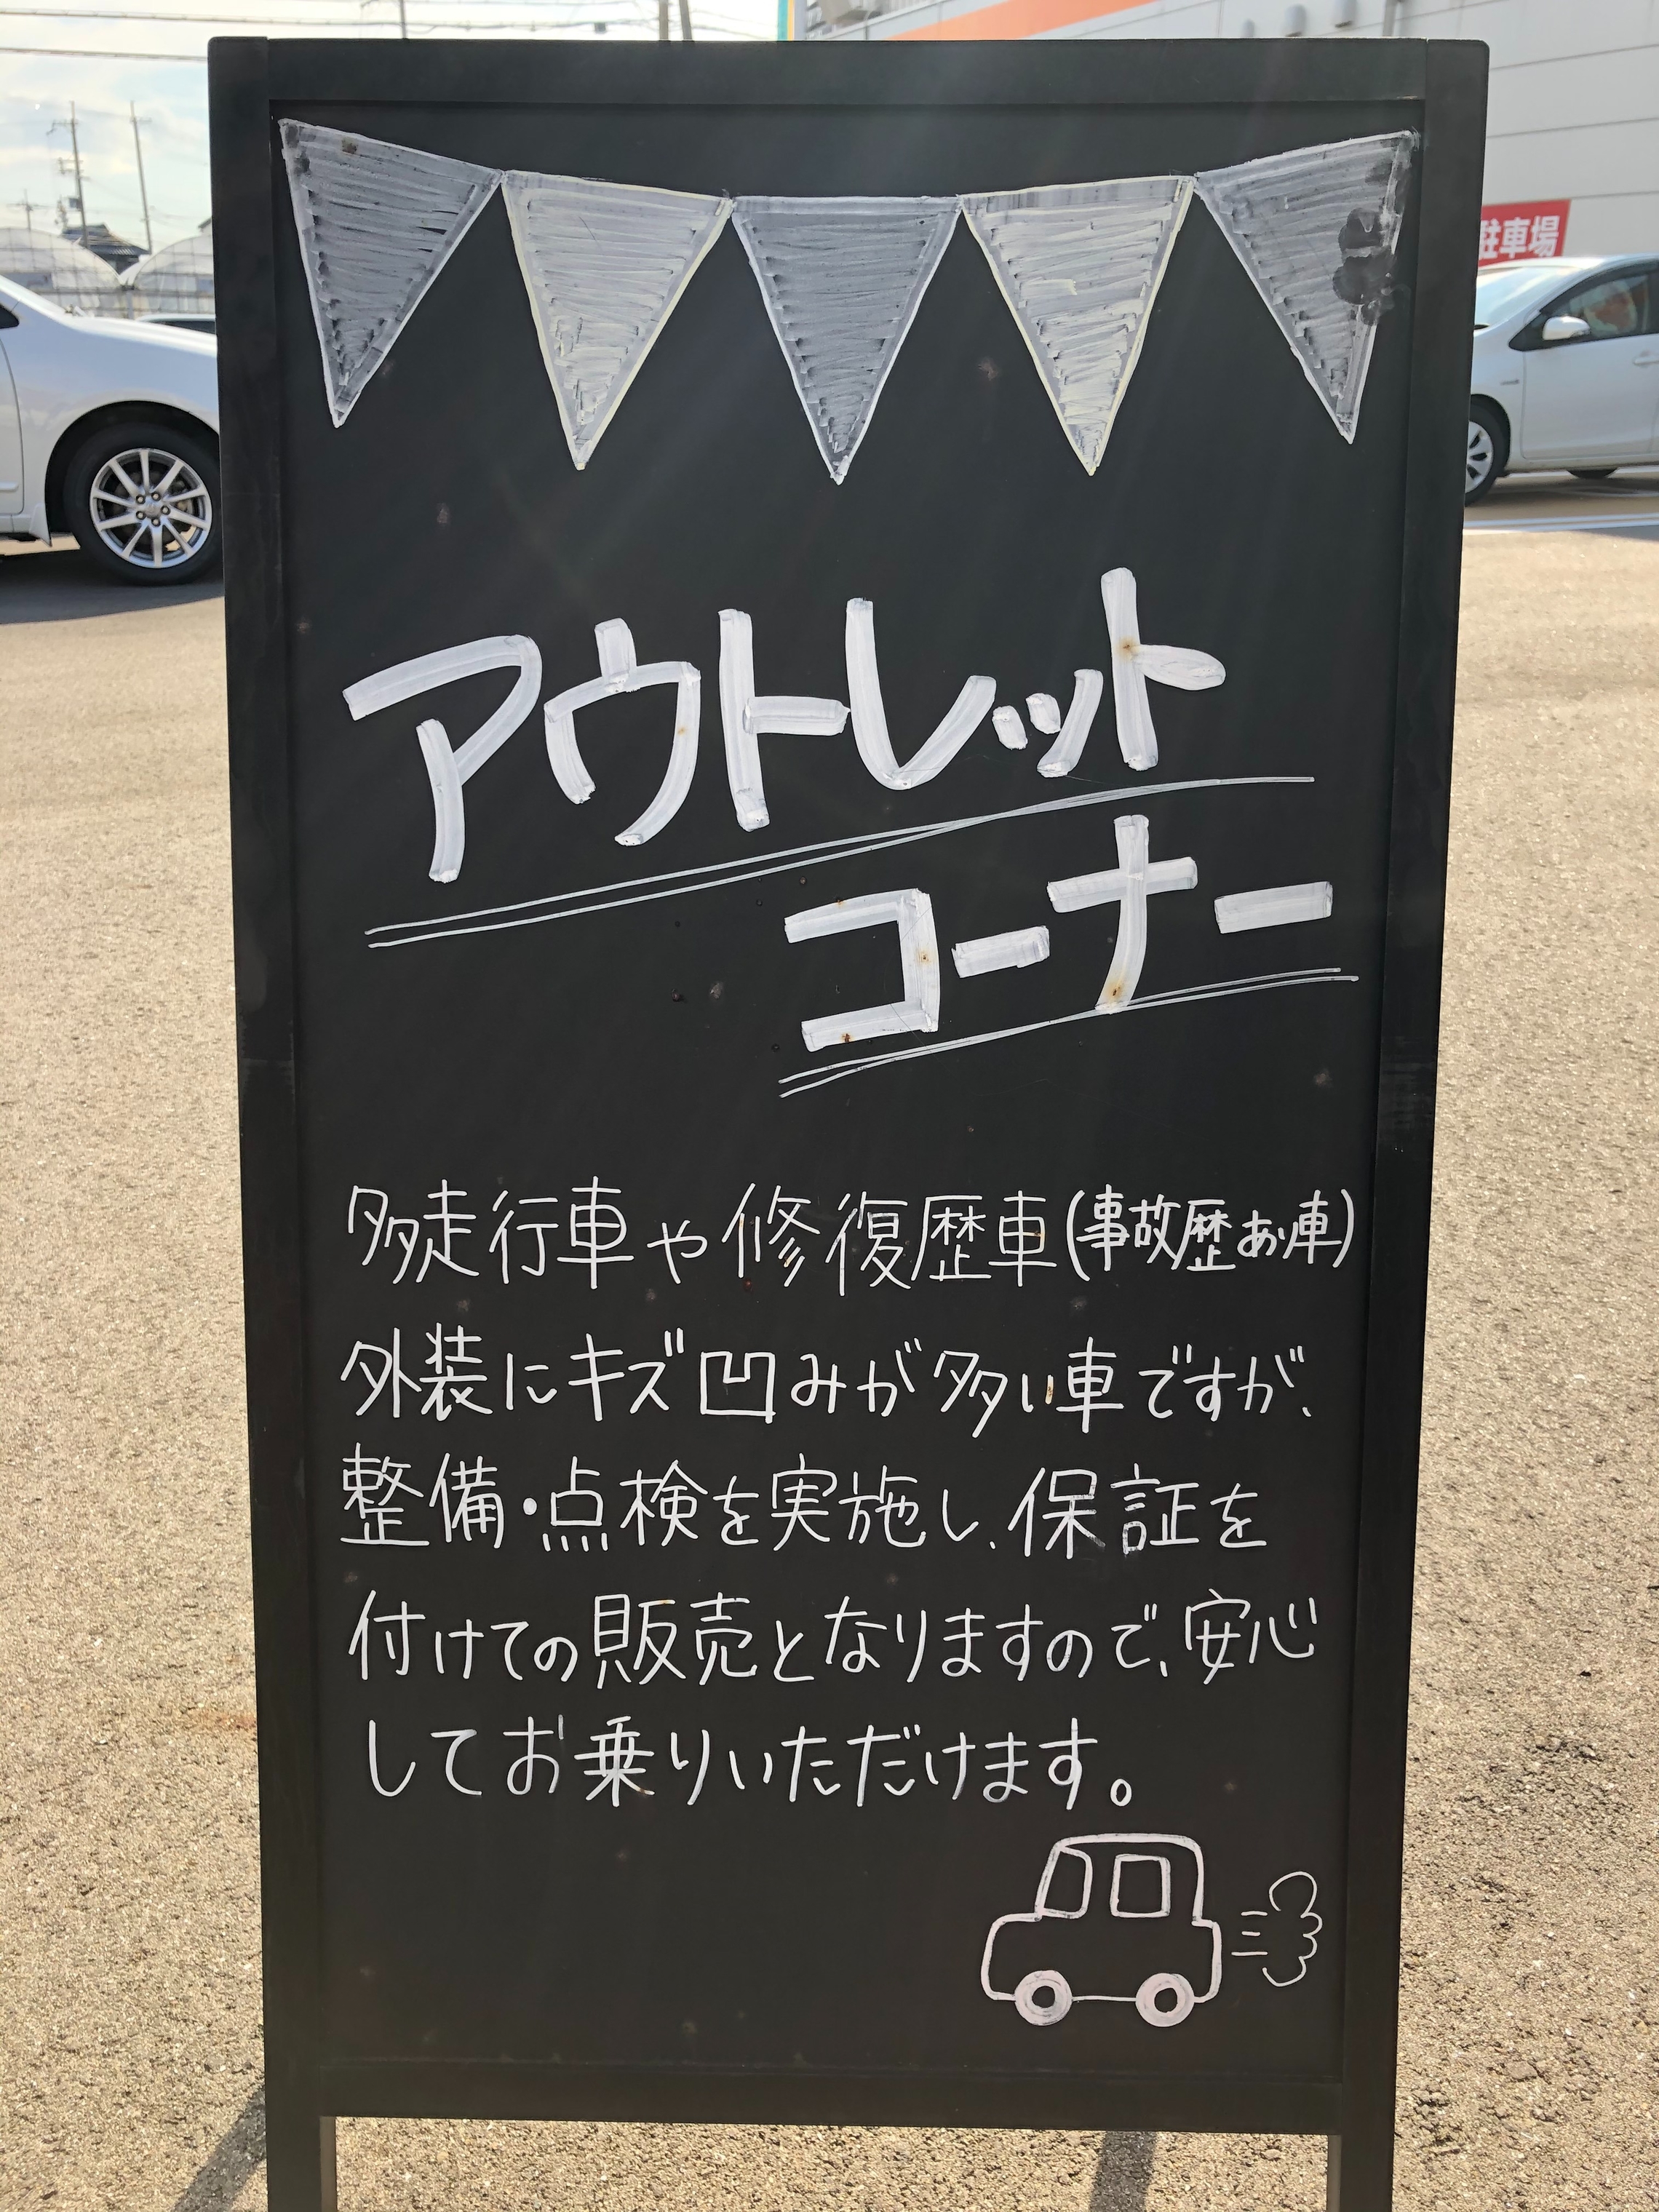 駐車場
アウトレット
コーナー
多走行車や修復歴車(事故歴あり車)
外装にキズ凹みが多い車ですが、
整備・点検を実施し、保証を
付けての販売となりますので、安心
してお乗りいただけます。